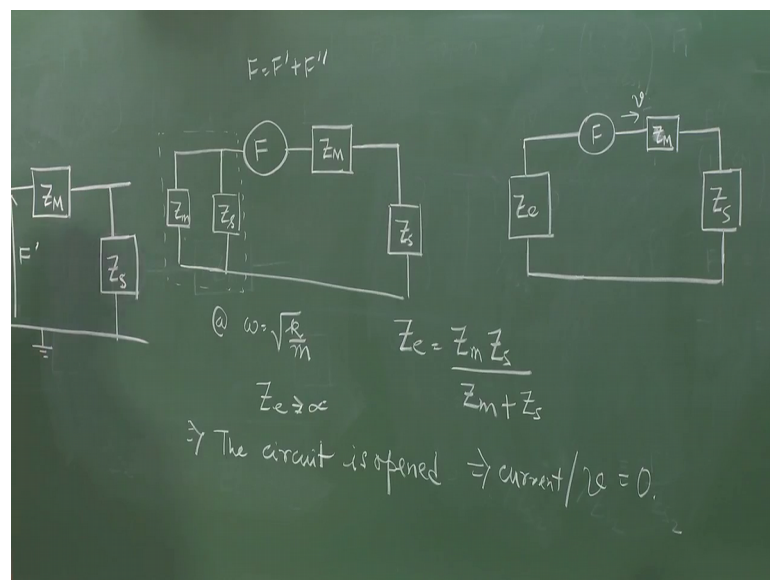 F=F'+F''
F
Z_M
Z_m
Z_s
Z_s
v
F
Z_m
Z_e
Z_s
Z_M
F'
Z_s
@ ω=√(k/m)
Z_e = Z_m Z_s / (Z_m + Z_s)
Z_e → ∝
⇒ The circuit is opened ⇒ current / v = 0.